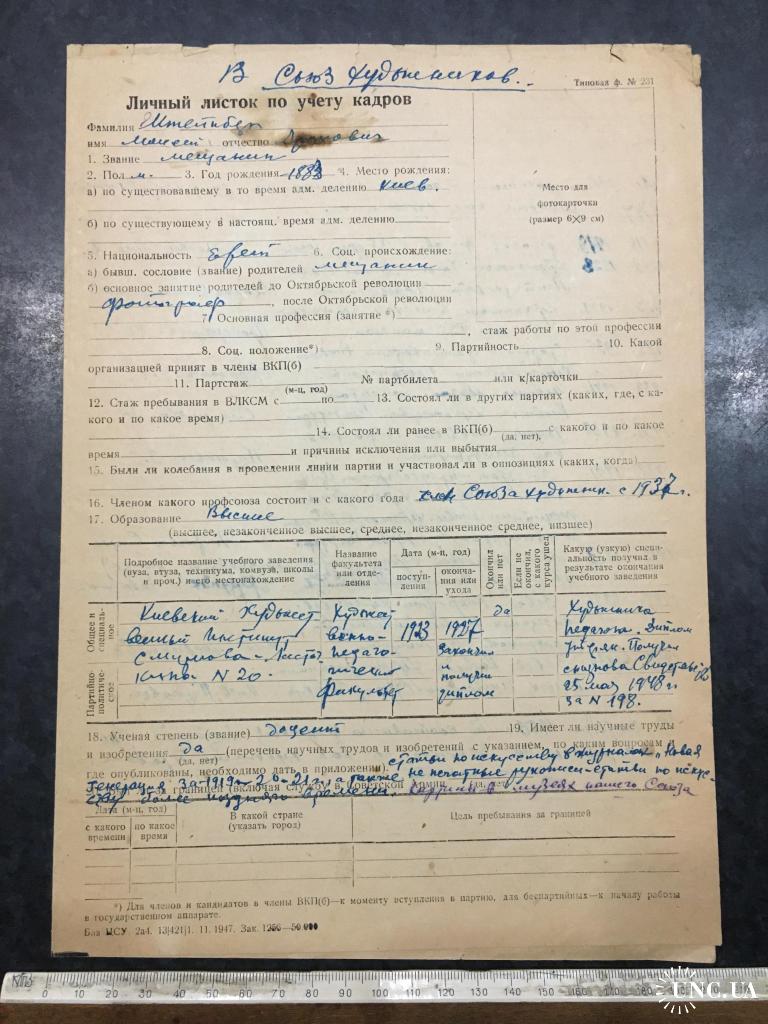 В Союз Художников.
Типовая ф. № 231
Личный листок по учету кадров
Фамилия Штейнберг
имя отчество
1. Звание мещанин
2. Пол м. 3. Год рождения 1883 4. Место рождения:
а) по существовавшему в то время адм. делению Киев.
Место для
фотокарточки
(размер 6×9 см)
б) по существующему в настоящ. время адм. делению
5. Национальность еврей 6. Соц. происхождение:
а) бывш. сословие (звание) родителей мещанин
б) основное занятие родителей до Октябрьской революции
фотограф, после Октябрьской революции
7. Основная профессия (занятие*)
, стаж работы по этой профессии
8. Соц. положение*) 9. Партийность 10. Какой
организацией принят в члены ВКП(б)
11. Партстаж № партбилета или к/карточки
(м-ц, год)
12. Стаж пребывания в ВЛКСМ с по 13. Состоял ли в других партиях (каких, где, с ка-
кого и по какое время)
14. Состоял ли ранее в ВКП(б) с какого и по какое
(да, нет),
время и причины исключения или выбытия
15. Были ли колебания в проведении линии партии и участвовал ли в оппозициях (каких, когда)
16. Членом какого профсоюза состоит и с какого года член Союза художник. с 1937 г.
17. Образование Высшее
(высшее, незаконченное высшее, среднее, незаконченное среднее, низшее)
Подробное название учебного заведения (вуза, втуза, техникума, комвуза, школы и проч.) и его местонахождение
Название факультета или отделения
Дата (м-ц, год)
поступления
окончания или ухода
Окончил или нет
Если не окончил, с какого курса ушел
Какую (узкую) специальность получил в результате окончания учебного заведения
Общее и специальное
Партийно-политическое
Киевский Художест
венный Институт
Смирнова-Ласточ
кина N 20.
Художест
венно-
педаго-
гический
факультет
1923
1927
закончил
и
получил
диплом
да
Художника
педагога. Диплом
утерян. Получил
25 мая 1948 г
за N 198.
18. Ученая степень (звание) доцент 19. Имеет ли научные труды
и изобретения да (перечень научных трудов и изобретений с указанием, по каким вопросам и
(да, нет)
где опубликованы, необходимо дать в приложении). статьи по искусству в журналах „Новая
Генерация за а также не печатные рукописи-статьи по искус-
ству более позднего времени. картины в музеях нашего Союза
границей (включая службу в Советской Армии)
Дата (м-ц, год)
с какого времени
по какое время
В какой стране
(указать город)
Цель пребывания за границей
*) Для членов и кандидатов в члены ВКП(б)—к моменту вступления в партию, для беспартийных—к началу работы
в государственном аппарате.
Бла ЦСУ 2а4. 13|421|1. 11. 1947. Зак. 1256—50.000
0 10 20 30 40 50 60 70 80 90 100 110 120 130 140 150 160 170 180 190
UNC.UA